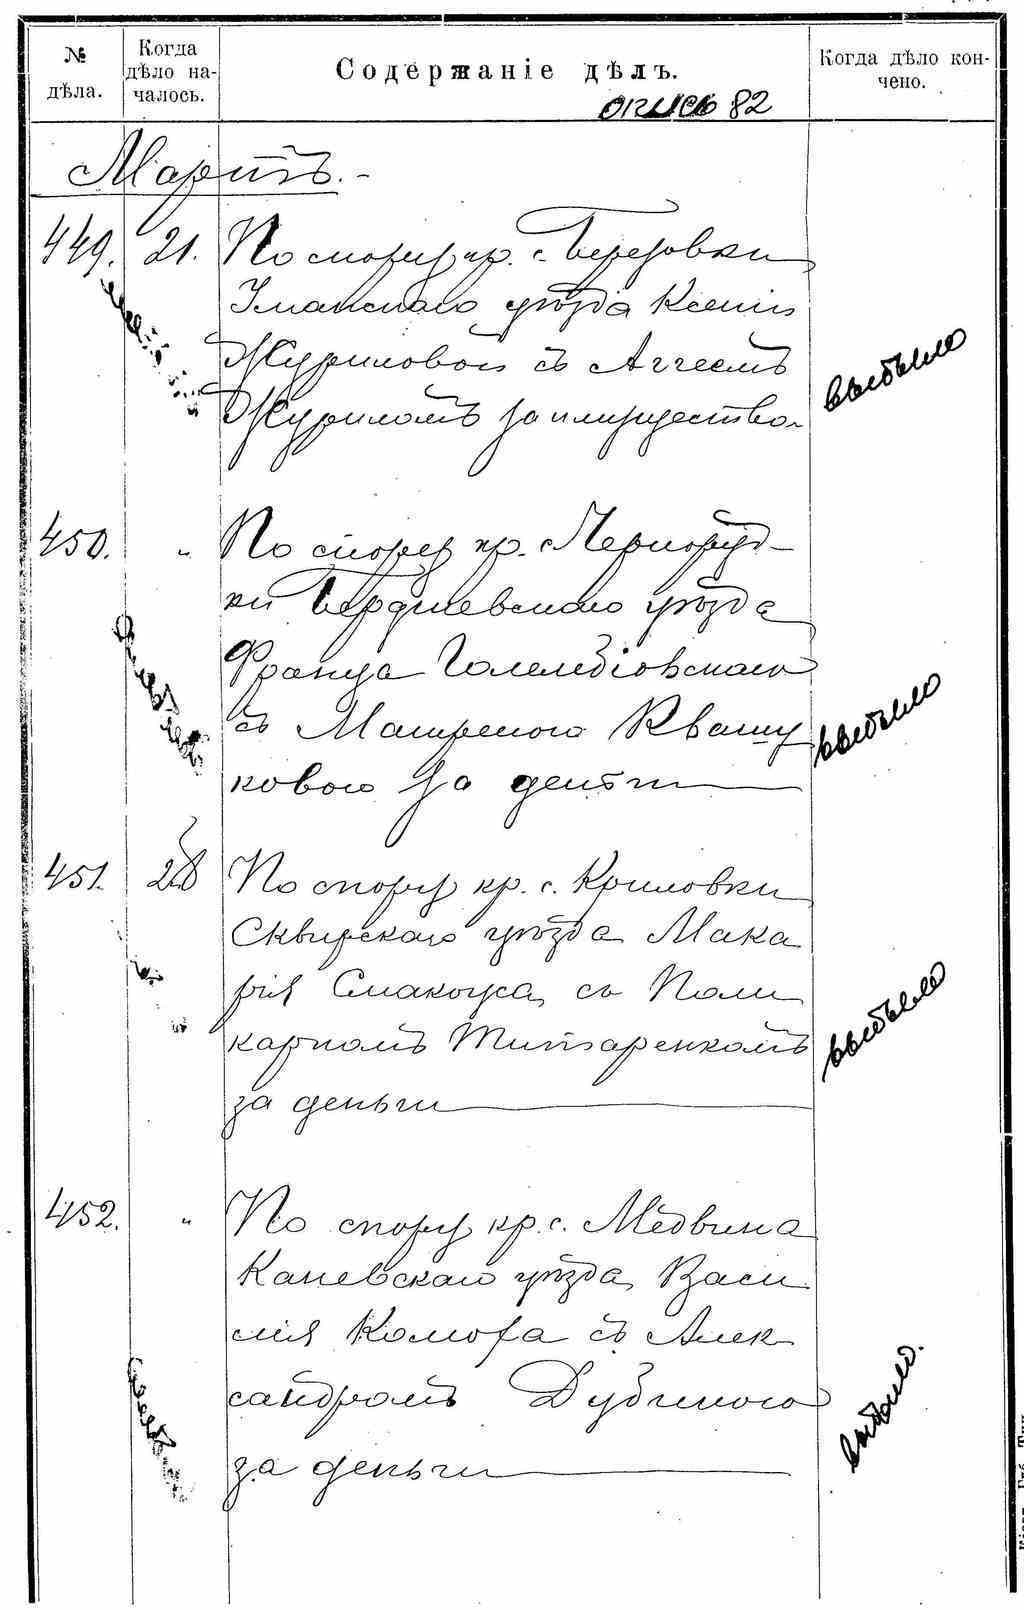 № дѣла.
Когда дѣло началось.
Содержаніе дѣлъ.
Когда дѣло кончено.
опись 82
Мартъ.-
449. 21. По спору кр. с. Березовки
Уманскаго уѣзда Ксеніи
Журиловой съ Аггеемъ
Журиломъ за имущество
выбыло
450. " По спору кр. с. Черноруд-
ки Бердичевскаго уѣзда
Франца Голембіовскаго
съ Квашу
ковою за деньги
выбыло
451. 28 По спору кр. с. Криловки
Сквирскаго уѣзда Мака
рія Смакоуса съ Поли
карпомъ Титаренкомъ
за деньги
выбыло
452. " По спору кр. с. Медвина
Каневскаго уѣзда Васи
лія Комора съ Алек
сандромъ
за деньги
выбыло.